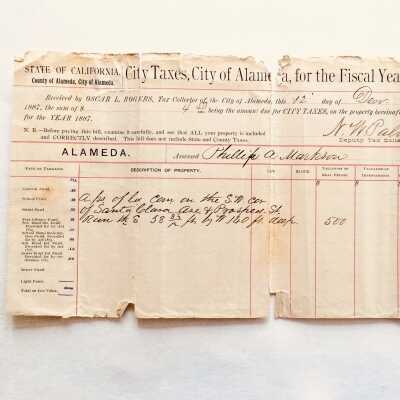 STATE OF CALIFORNIA.
County of Alameda, City of Alameda.
City Taxes, City of Alameda, for the Fiscal Yea
Received by OSCAR L. ROGERS, Tax Collector of the City of Alameda, this 12 day of Dec
1887, the sum of $ 4.40 being the amount due for CITY TAXES, on the property hereinaf
for the YEAR 1887.
N. B.—Before paying this bill, examine it carefully, and see that ALL your property is included
and CORRECTLY described. This bill does not include State and County Taxes.
Deputy Tax Colle
ALAMEDA.
Assessed Phillip A. Markson
RATE OF TAXATION.
DESCRIPTION OF PROPERTY.
LOT
BLOCK
VALUATION OF REAL ESTATE.
VALUATION OF IMPROVEMENTS.
General Fund
School Fund
Street Fund
Sewer Fund
Light Fund
A ps of Ld com on the S.W. cor
of Santa Clara Ave & Prospect St.
Run th E 58 ft. by 160 ft. deep
500